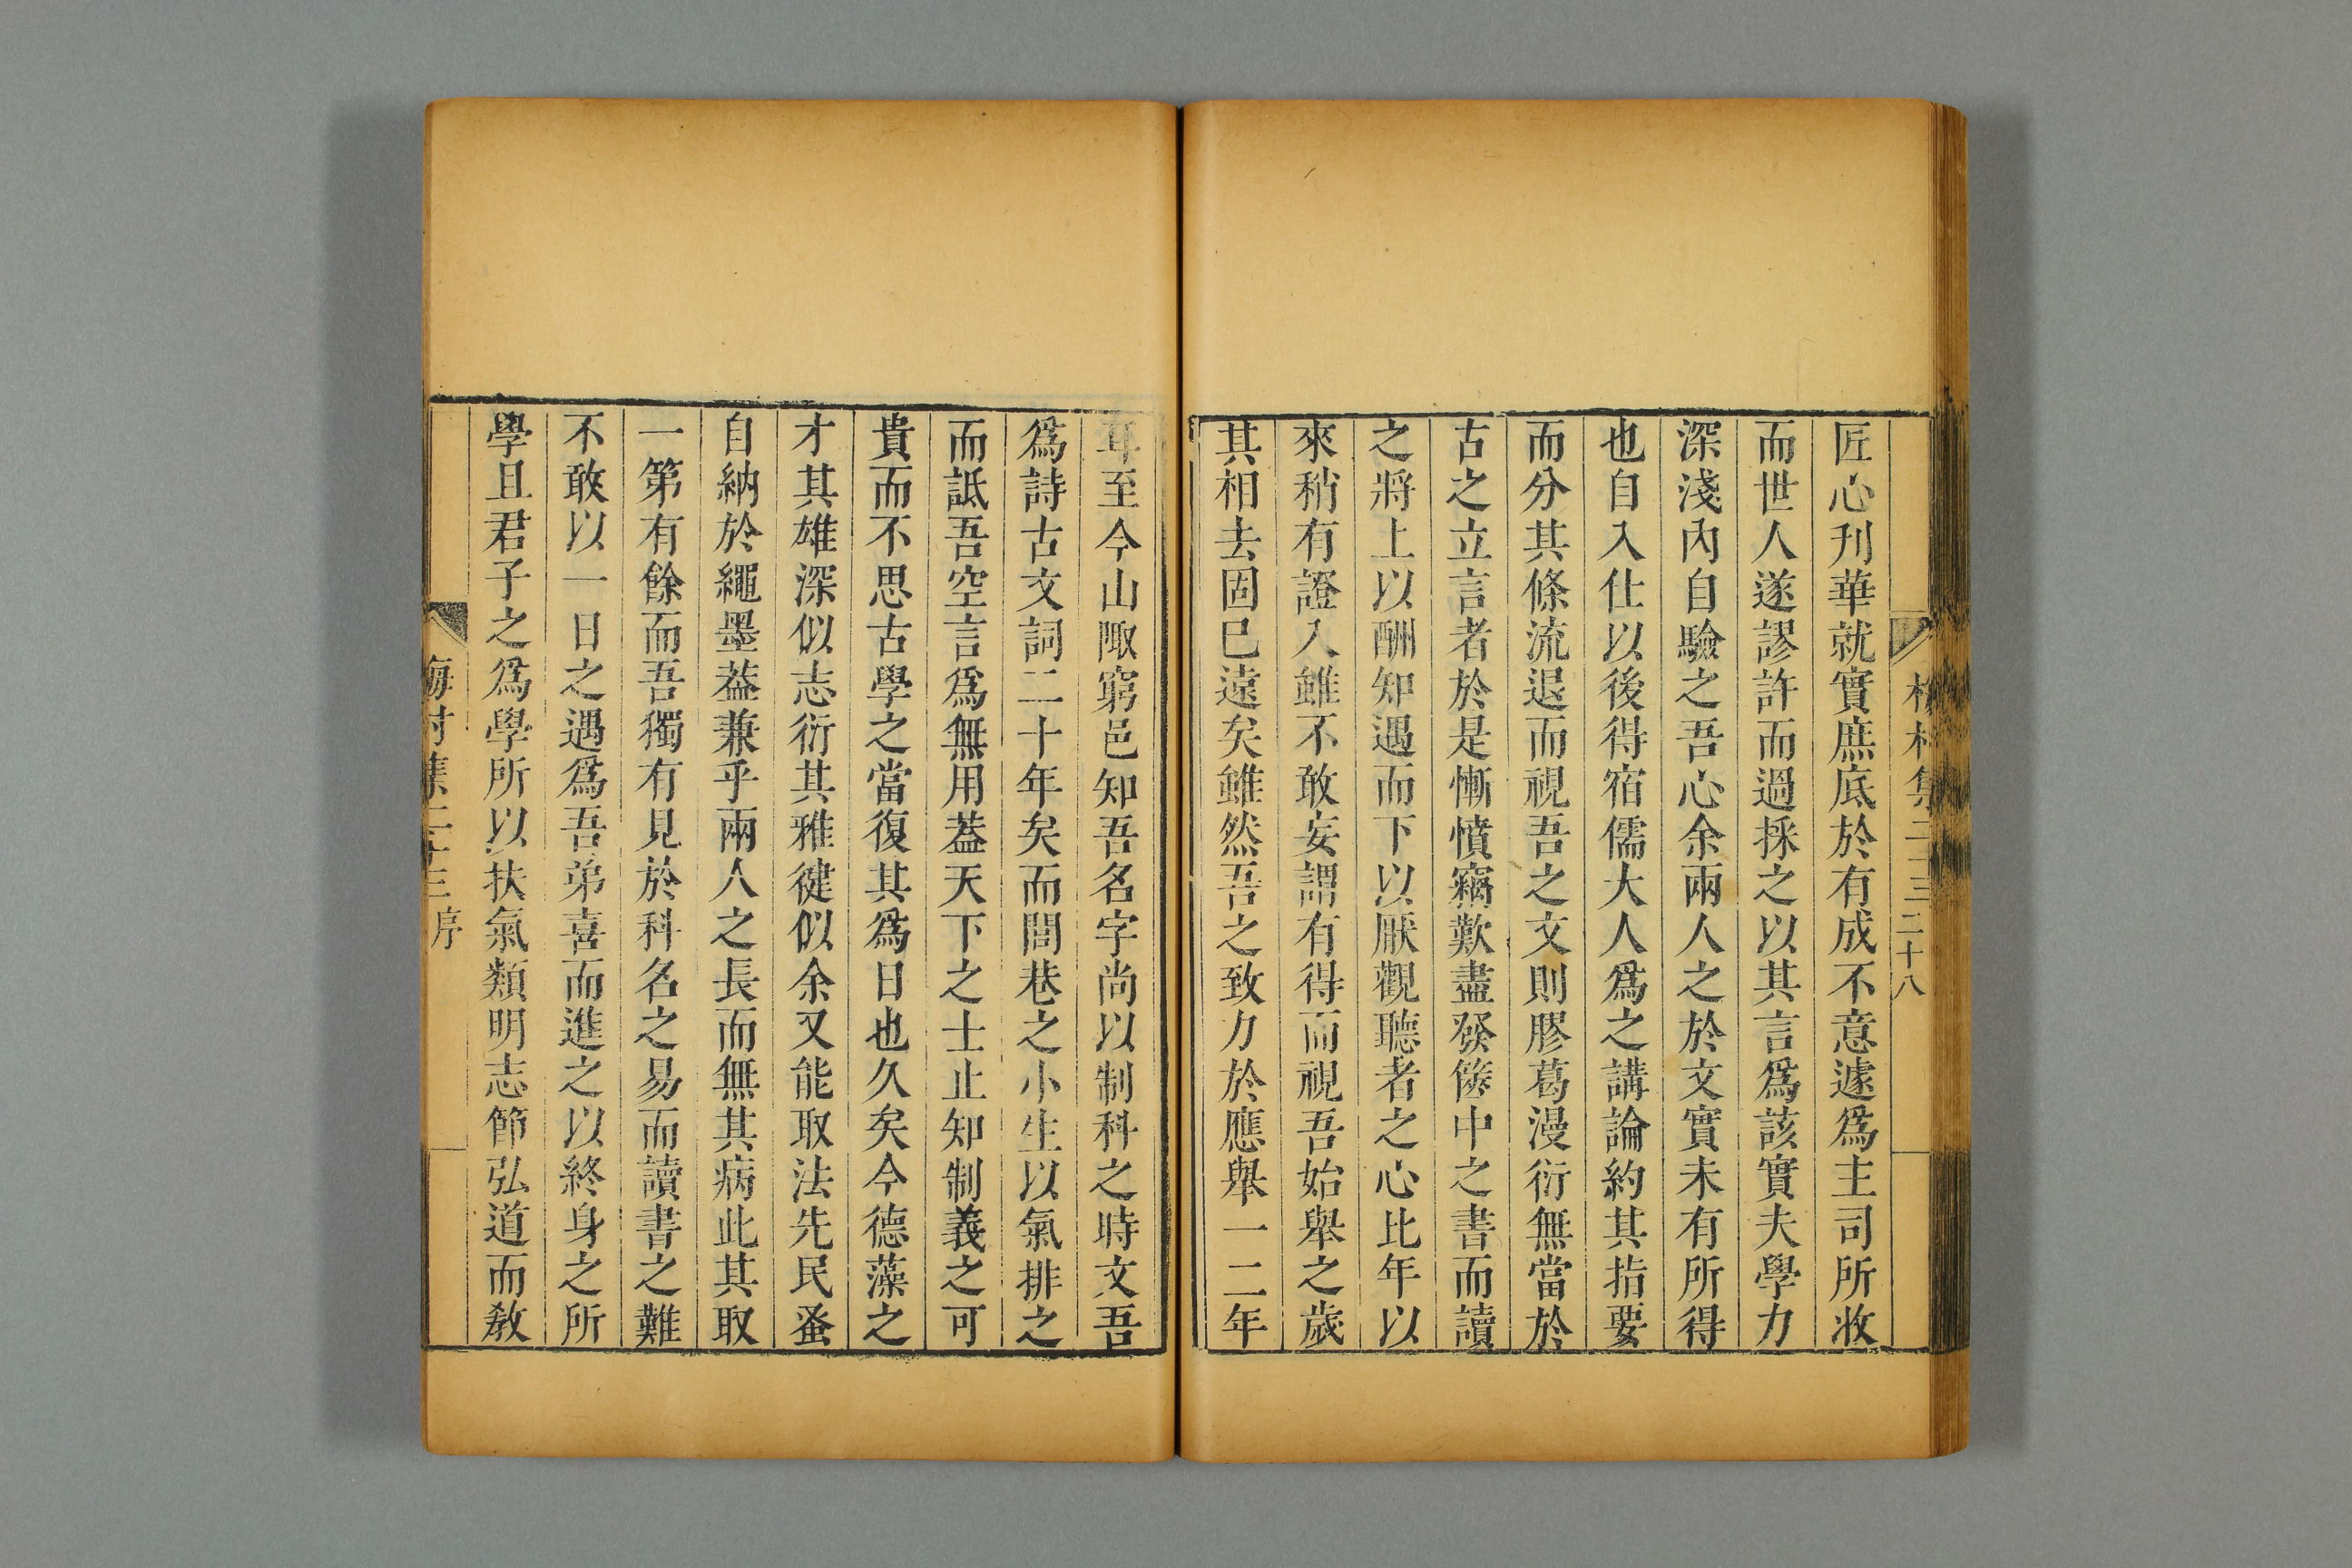 匠心刋華就實庶底於有成不意遽爲主司所收
而世人遂謬許而過採之以其言爲該實夫學力
深淺內自驗之吾心余兩人之於文實未有所得
也自入仕以後得宿儒大人爲之講論約其指要
而分其條流退而視吾之文則膠葛漫衍無當於
古之立言者於是慚憤竊歎盡發篋中之書而讀
之將上以酬知遇而下以厭觀聽者之心比年以
來稍有證入雖不敢妄謂有得而視吾始舉之歲
其相去固已遠矣雖然吾之致力於應舉一二年
耳至今山陬窮邑知吾名字尚以制科之時文吾
爲詩古文詞二十年矣而閭巷之小生以氣排之
而詆吾空言爲無用葢天下之士止知制義之可
貴而不思古學之當復其爲日也久矣今德藻之
才其雄深似志衍其雅健似余又能取法先民蚤
自納於繩墨葢兼乎兩人之長而無其病此其取
一第有餘而吾獨有見於科名之易而讀書之難
不敢以一日之遇爲吾弟喜而進之以終身之所
學且君子之爲學所以扶氣類明志節弘道而敎
梅村集二十三序
二十八